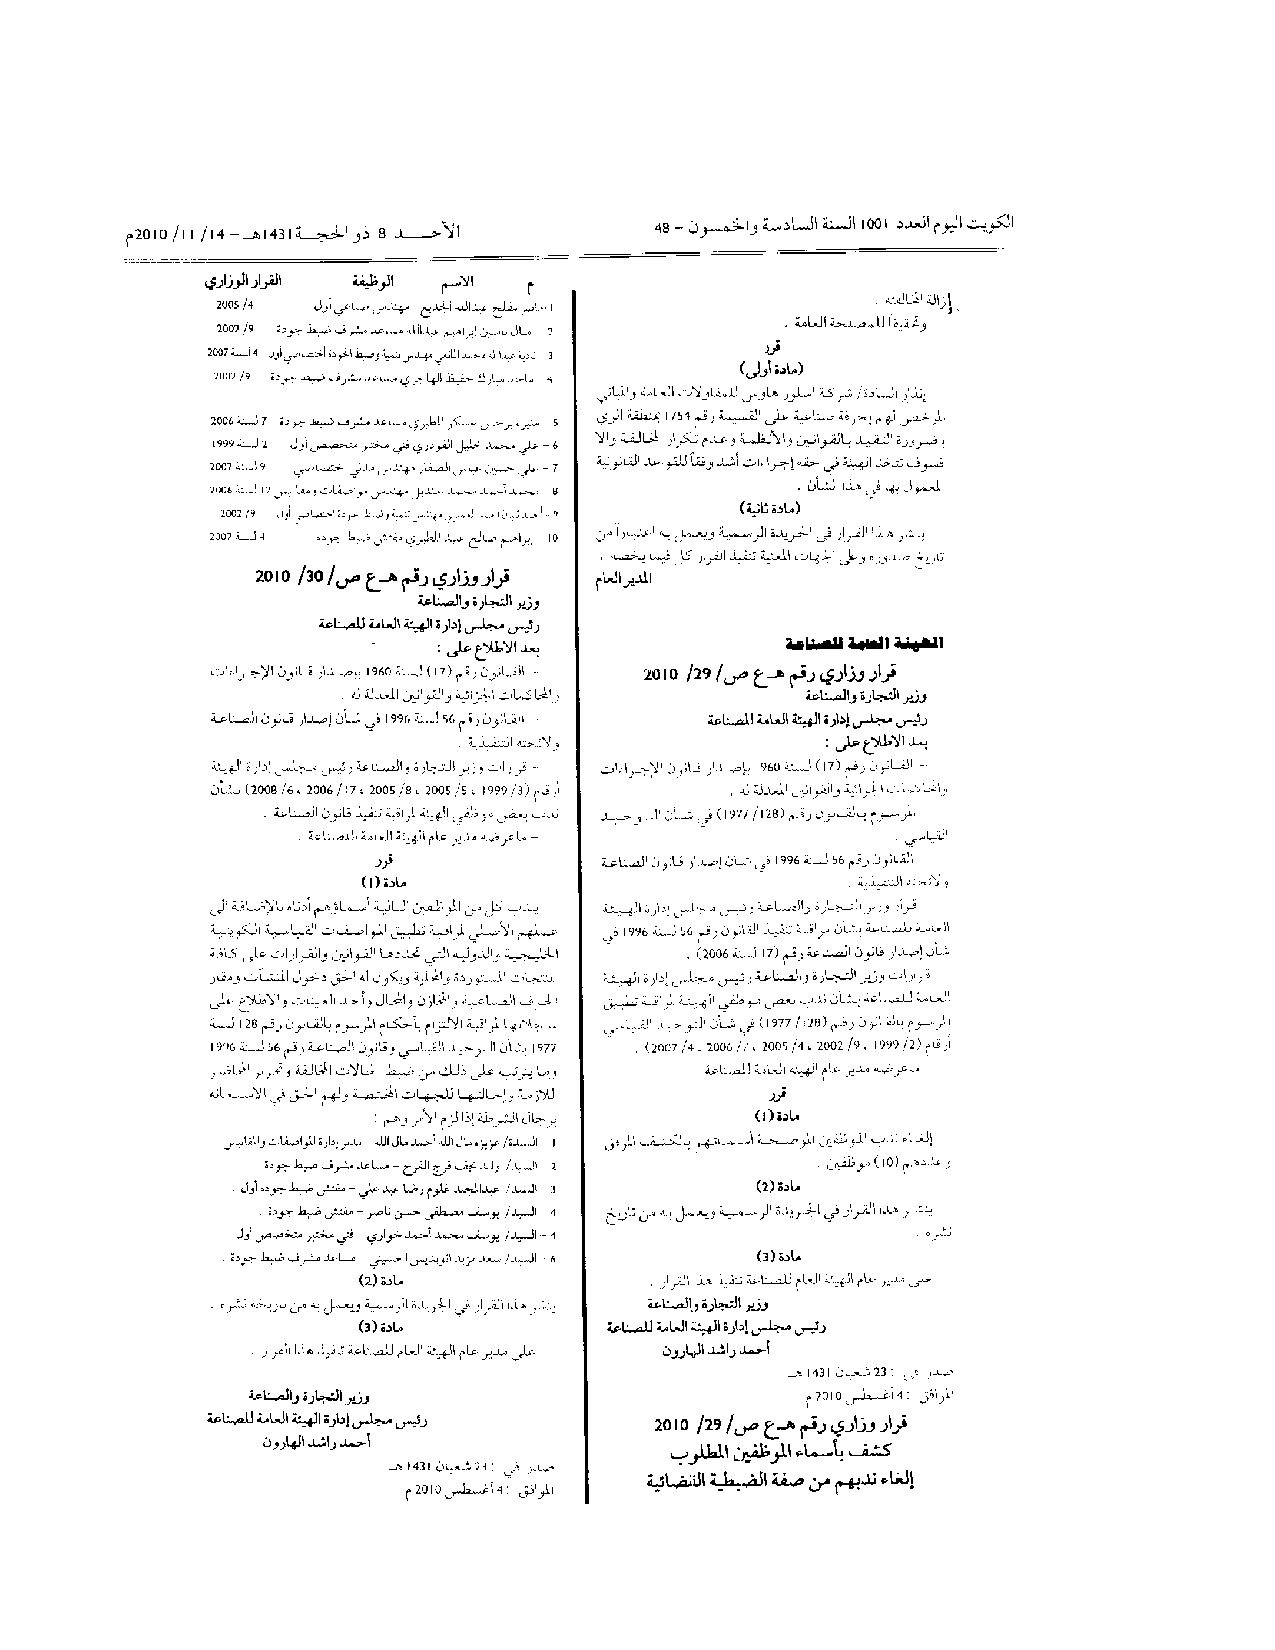 الكويت اليوم العدد 1001 السنة السادسة والخمسون - 48
الأحـــــد 8 ذو الحجـــة 1431هـ - 14/ 11/ 2010م
إزالة المخالفة .
وتحقيقا للمصلحة العامة .
قرر
(مادة أولى)
إنذار السادة/ شركة للمقاولات العامة والمباني
المرخص لهم بحرفة صناعية على القسيمة رقم 1/54 بمنطقة الري
بضرورة التقيد بالقوانين والأنظمة وعدم تكرار المخالفة والا
فسوف تتخذ الهيئة في حقه إجراءات أشد وفقاً للقواعد القانونية
المعمول بها في هذا الشأن .
(مادة ثانية)
ينشر هذا القرار في الجريدة الرسمية ويعمل به اعتباراً من
تاريخ صدوره وعلى الجهات المعنية تنفيذ القرار كل فيما يخصه .
المدير العام
الهيئة العامة للصناعة
قرار وزاري رقم هـ ع ص/ 29/ 2010
وزير التجارة والصناعة
رئيس مجلس إدارة الهيئة العامة للصناعة
بعد الاطلاع على :
- القانون رقم (17) لسنة 960 بإصدار قانون الإجراءات
والمحاكمات الجزائية والقوانين المعدلة له .
المرسوم بالقانون رقم (128/ 1977) في شأن التوحيد
القياسي .
القانون رقم 56 لسنة 1996 في شأن إصدار قانون الصناعة
ولائحته التنفيذية .
قرار وزير التجارة والصناعة ورئيس مجلس إدارة الهيئة
العامة للصناعة بشأن مراقبة تنفيذ القانون رقم 56 لسنة 1996 في
شأن إصدار قانون الصناعة رقم (17 لسنة 2006) .
قرارات وزير التجارة والصناعة رئيس مجلس إدارة الهيئة
العامة للصناعة بشأن ندب بعض موظفي الهيئة لمراقبة تطبيق
المرسوم بالقانون رقم (128/ 1977) في شأن التوحيد القياسي
أرقام (2/ 1999 ، 9/ 2002 ، 4/ 2005 ، 7/ 2006 ، 4/ 2007) .
ما عرضه مدير عام الهيئة العامة للصناعة
قرر
مادة (1)
إلغاء ندب الموظفين الموضحة أسمائهم بالكشف المرفق
وعددهم (10) موظفين .
مادة (2)
ينشر هذا القرار في الجريدة الرسمية ويعمل به من تاريخ
نشره .
مادة (3)
على مدير عام الهيئة العام للصناعة تنفيذ هذا القرار .
وزير التجارة والصناعة
رئيس مجلس إدارة الهيئة العامة للصناعة
أحمد راشد الهارون
صدر في : 23 شعبان 1431 هـ
الموافق : 4 أغسطس 2010 م
قرار وزاري رقم هـ ع ص/ 29/ 2010
كشف بأسماء الموظفين المطلوب
إلغاء ندبهم من صفة الضبطية القضائية
م الاسم الوظيفة القرار الوزاري
1 ناصر مفلح عبدالله مهندس صناعي أول 4/ 2005
2 ياسين إبراهيم عبدالله مساعد مشرف ضبط جودة 9/ 2002
3 نادية عبدالله محمد مهندس تنمية وضبط الجودة أختصاصي أول 4 لسنة 2007
4 ماجد مبارك حفيظ الهاجري مساعد مشرف ضبط جودة 9/ 2002
5 منيره برجس عسكر المطيري مساعد مشرف ضبط جودة 7 لسنة 2006
6 - علي محمد خليل فني مختبر متخصص أول 2 لسنة 1999
7 - علي حسين عباس الصفار مهندس مدني اختصاصي 9 لسنة 2007
8 محمد أحمد محمد قنديل مهندس مواصفات ومقاييس 17 لسنة 2006
9 - مهندس تنمية وضبط جودة اختصاصي أول 9/ 2002
10 إبراهيم صالح عبد المطيري مفتش ضبط جودة 4 لسنة 2007
قرار وزاري رقم هـ ع ص/ 30/ 2010
وزير التجارة والصناعة
رئيس مجلس إدارة الهيئة العامة للصناعة
بعد الاطلاع على :
- القانون رقم (17) لسنة 1960 بإصدار قانون الإجراءات
والمحاكمات الجزائية والقوانين المعدلة له .
- القانون رقم 56 لسنة 1996 في شأن إصدار قانون الصناعة
ولائحته التنفيذية .
- قرارات وزير التجارة والصناعة رئيس مجلس إدارة الهيئة
أرقام (3/ 1999 ، 5/ 2005 ، 8/ 2005 ، 17/ 2006 ، 6/ 2008) بشأن
ندب بعض موظفي الهيئة لمراقبة تنفيذ قانون الصناعة .
- ما عرضه مدير عام الهيئة العامة للصناعة .
قرر
مادة (1)
يندب كل من الموظفين التالية أسماؤهم أدناه بالإضافة الى
عملهم الأصلي لمراقبة تطبيق المواصفات القياسية الكويتية
الخليجية والدولية التي تحددها القوانين والقرارات على كافة
المنتجات المستوردة والمحلية ويكون له الحق دخول المنشآت ومقار
الحرف الصناعية والمخازن والمحال وأخذ العينات والاطلاع على
سجلاتها لمراقبة الالتزام بأحكام المرسوم بالقانون رقم 128 لسنة
1977 بشأن التوحيد القياسي وقانون الصناعة رقم 56 لسنة 1996
وما يترتب على ذلك من ضبط حالات المخالفة وتحرير المحاضر
اللازمة وإحالتها للجهات المختصة ولهم الحق في الاستعانة
برجال الشرطة إذا لزم الأمر وهم :
1 السيدة/ عزيزه مال الله أحمد مال الله مدير إدارة المواصفات والمقاييس
2 السيد/ وليد نجف فرج الفرج - مساعد مشرف ضبط جودة
3 السيد/ عبدالمجيد غلوم رضا عبد علي - مفتش ضبط جودة أول .
4 السيد/ يوسف مصطفى حسن ناصر - مفتش ضبط جودة .
4 - السيد/ يوسف محمد أحمد خواري فني مختبر متخصص أول
6 - السيد/ سعد مزيد مساعد مشرف ضبط جودة .
مادة (2)
ينشر هذا القرار في الجريدة الرسمية ويعمل به من تاريخه نشره .
مادة (3)
على مدير عام الهيئة العام للصناعة تنفيذ هذا القرار .
وزير التجارة والصناعة
رئيس مجلس إدارة الهيئة العامة للصناعة
أحمد راشد الهارون
صدر في : 23 شعبان 1431 هـ
الموافق : 4 أغسطس 2010 م